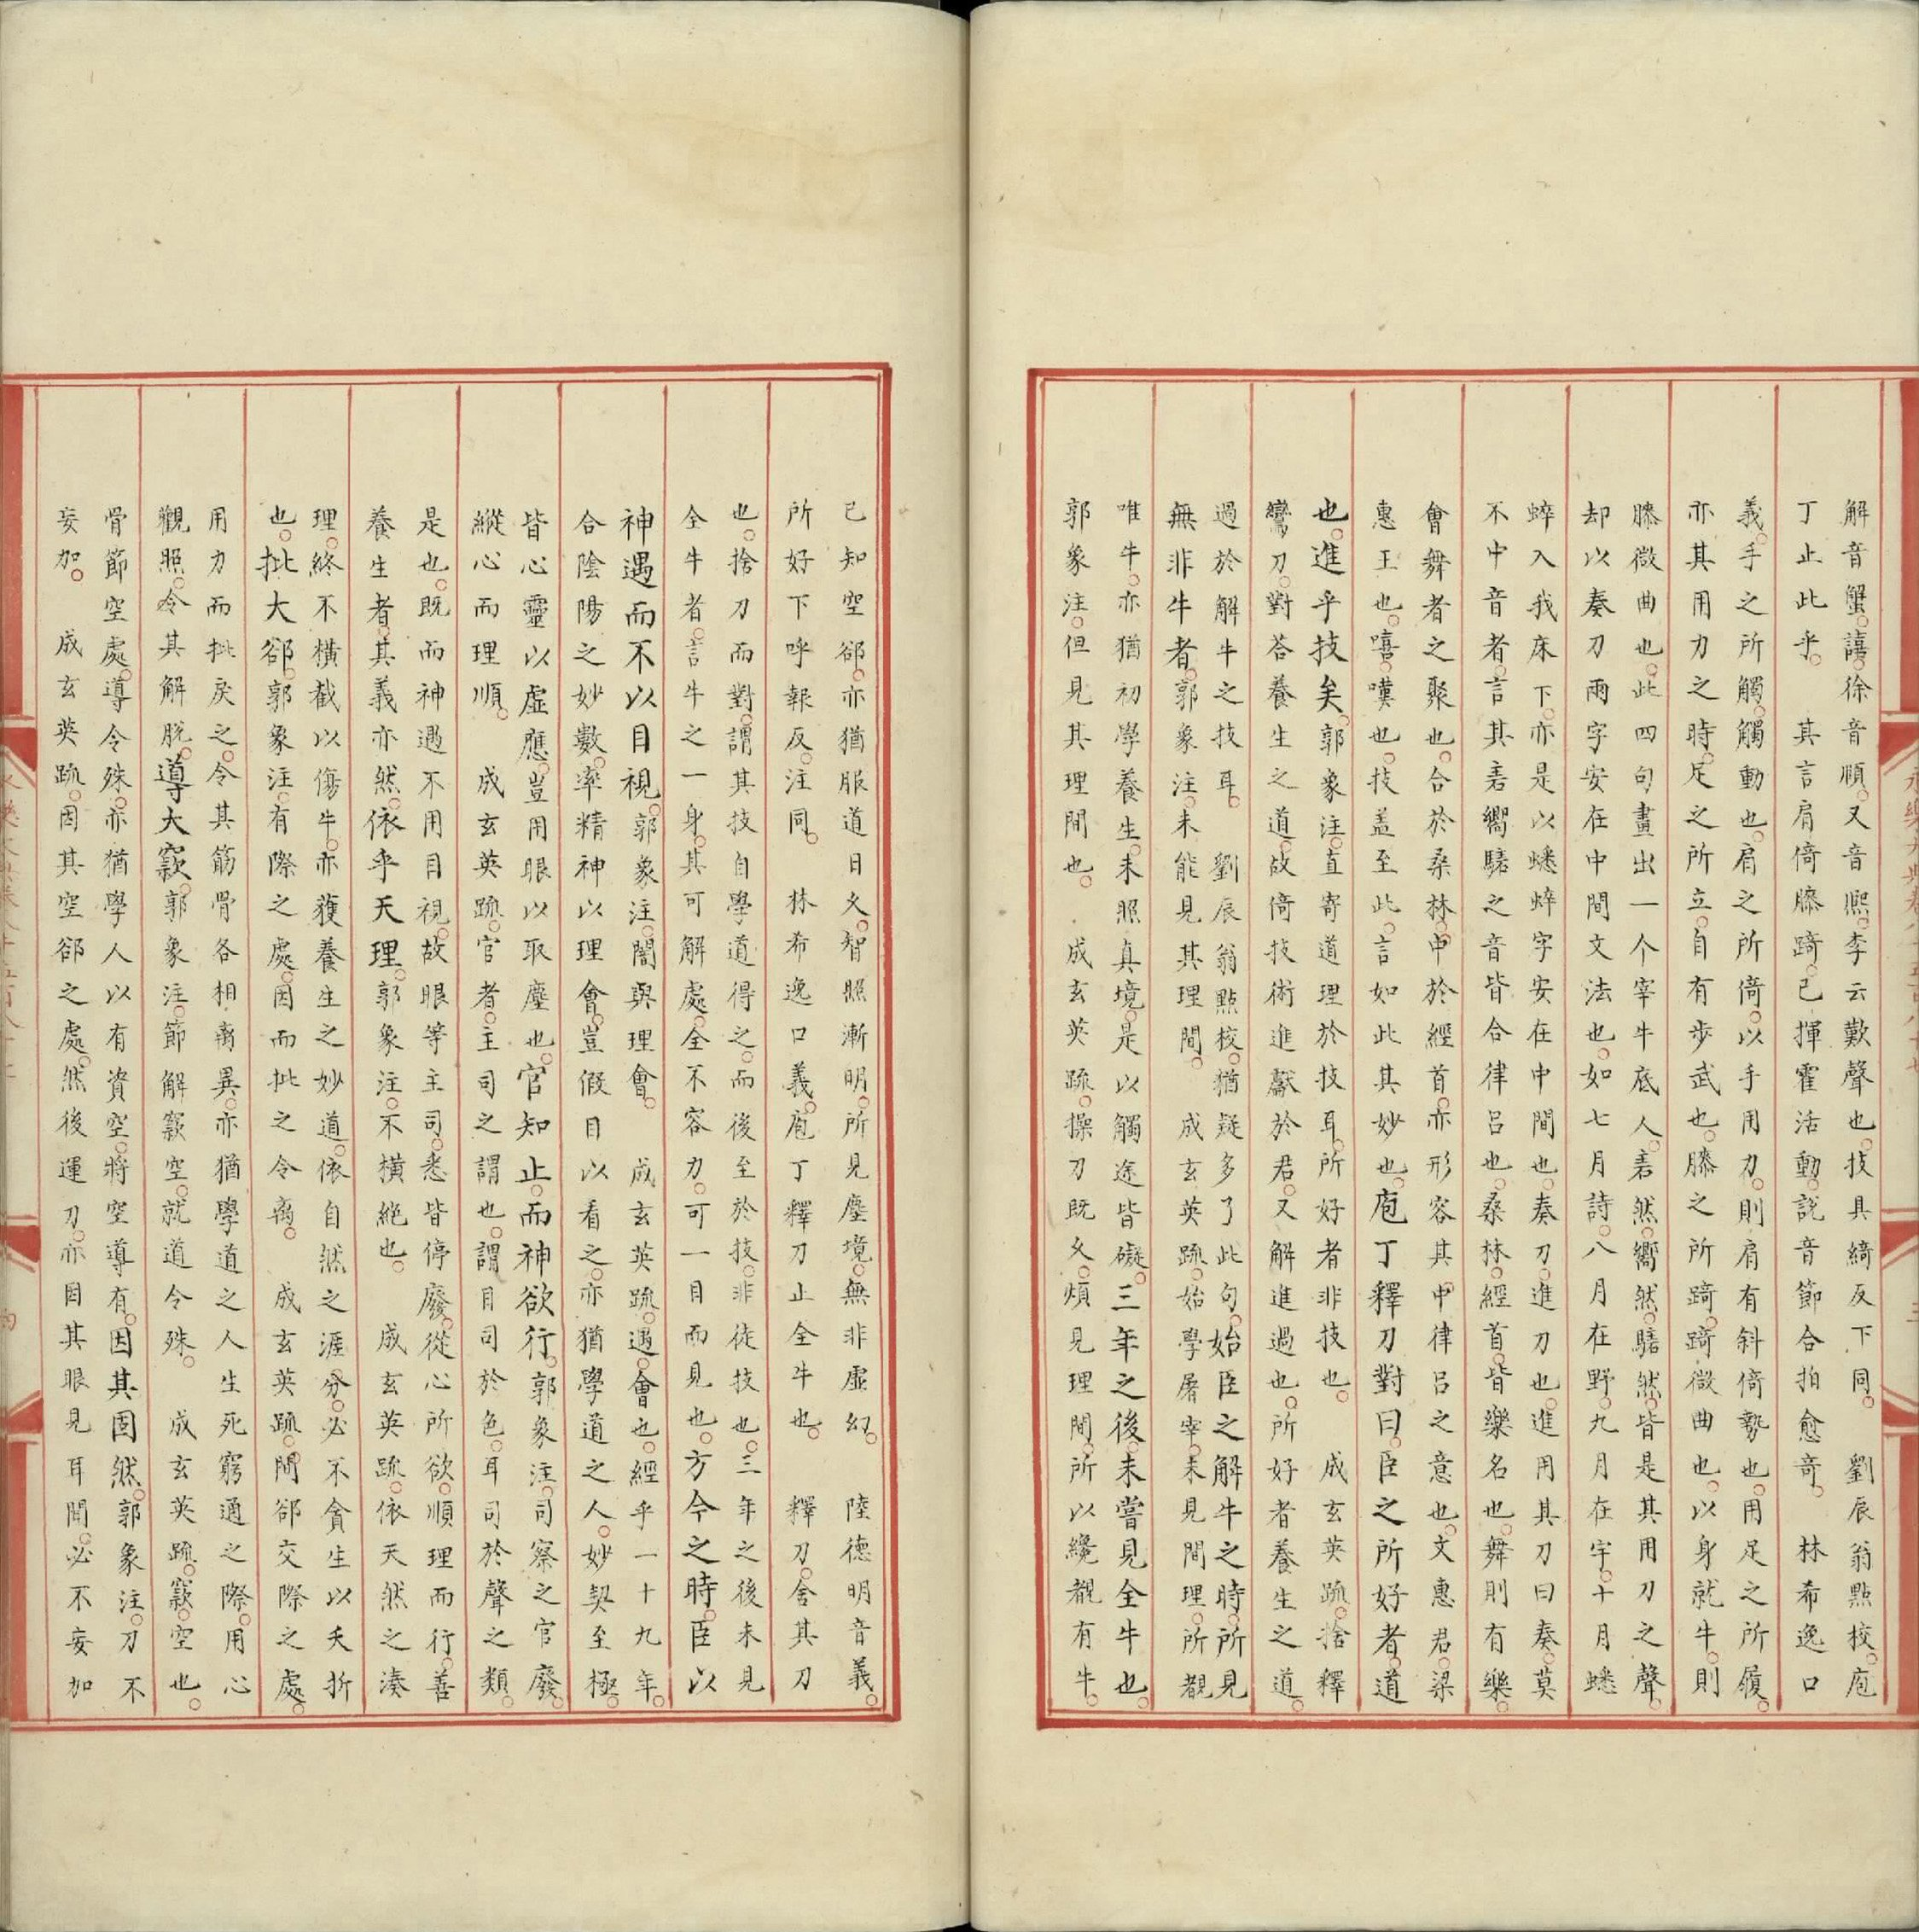 解音蟹。譆徐音順。又音熈。李云歎聲也。技具綺反下同。　劉辰翁點校。庖
丁止此乎。　其言肩倚膝踦。已揮霍活動。説音節合拍愈奇。　林希逸口
義。手之所觸。觸動也。肩之所倚。以手用力。則肩有斜倚勢也。用足之所履。
亦其用力之時。足之所立。自有步武也。膝之所踦。踦微曲也。以身就牛。則
膝微曲也。此四句畫出一个宰牛底人。砉然。嚮然。騞然。皆是其用刀之聲。
却以奏刀兩字安在中間文法也。如七月詩。八月在野。九月在宇。十月蟋
蟀入我床下。亦是以蟋蟀字安在中間也。奏刀。進刀也。進用其刀曰奏。莫
不中音者。言其砉嚮騞之音皆合律吕也。桑林。經首。皆樂名也。舞則有樂。
會舞者之聚也。合於桑林。中於經首。亦形容其中律吕之意也。文惠君。梁
惠王也。嘻。嘆也。技盖至此。言如此其妙也。庖丁釋刀對曰。臣之所好者。道
也。進乎技矣。郭象注。直寄道理於技耳。所好者非技也。　成玄英疏。捨釋
鸞刀。對荅養生之道。故倚技術進獻於君。又解進過也。所好者養生之道。
過於解牛之技耳。　劉辰翁點校。猶疑多了此句。始臣之解牛之時。所見
無非牛者。郭象注。未能見其理間。　成玄英疏。始學屠宰。未見間理。所覩
唯牛。亦猶初學養生。未照真境。是以觸途皆礙。三年之後。未嘗見全牛也。
郭象注。但見其理間也。　成玄英疏。操刀既久。頻見理間。所以纔覩有牛。
已知空郤。亦猶服道日久。智照漸明。所見塵境。無非虚幻。　陸德明音義。
所好下呼報反。注同。　林希逸口義。庖丁釋刀止全牛也。　釋刀。舍其刀
也。捨刀而對。謂其技自學道得之。而後至於技。非徒技也。三年之後未見
全牛者。言牛之一身。其可解處。全不容力。可一目而見也。方今之時。臣以
神遇而不以目視。郭象注。闇與理會。　成玄英疏。遇。會也。經乎一十九年。
合陰陽之妙數。率精神以理會。豈假目以看之。亦猶學道之人。妙契至極。
皆心靈以虚應。豈用眼以取塵也。官知止。而神欲行。郭象注。司察之官廢。
縱心而理順。　成玄英疏。官者。主司之謂也。謂目司於色。耳司於聲之類。
是也。既而神遇不用目視。故眼等主司。悉皆停廢。從心所欲。順理而行。善
養生者。其義亦然。依乎天理。郭象注。不横絶也。　成玄英疏。依天然之湊
理。終不横截以傷牛。亦獲養生之妙道。依自然之涯分。必不貪生以夭折
也。批大郤。郭象注。有際之處。因而批之令离。　成玄英疏。間郤交際之處。
用力而批戾之。令其筋骨各相离異。亦猶學道之人生死窮通之際。用心
觀照。令其解脱。導大窾。郭象注。節解窾空。就道令殊。　成玄英疏。窾。空也。
骨節空處。導令殊。亦猶學人以有資空。將空導有。因其固然。郭象注。刀不
妄加。　成玄英疏。因其空郤之處。然後運刀。亦因其眼見耳聞。必不妄加